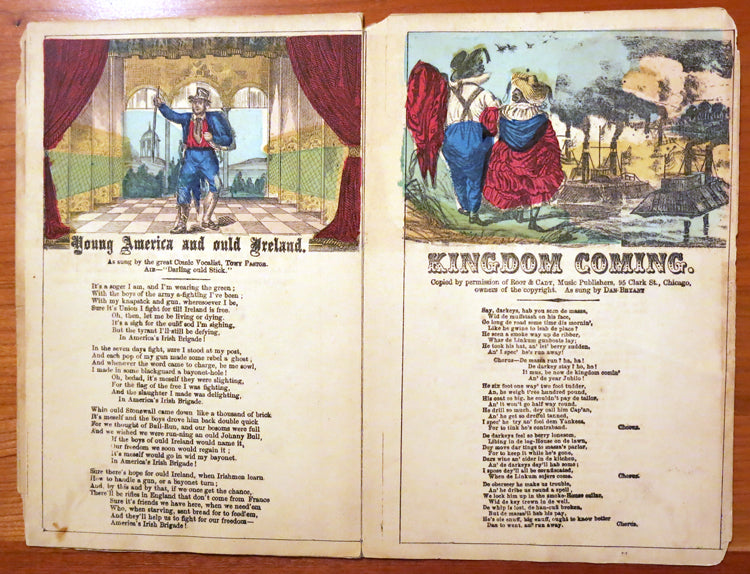 Young America and ould Ireland.
As sung by the great Comic Vocalist, TONY PASTOR.
AIR—"Darling ould Stick."
It's a soger I am, and I'm wearing the green;
With the boys of the army a-fighting I've been;
With my knapsick and gun, wheresoever I be,
Sure it's Union I fight for till Ireland is free.
Oh, then, let me be living or dying.
It's a sigh for the ould sod I'm sighing,
But the tyrant I'll still be defying,
In America's Irish Brigade!
In the seven days fight, sure I stood at my post,
And each pop of my gun made some rebel a ghost;
And whenever the word came to charge, be me sowl,
I made in some blackguard a bayonet-hole!
Oh, bedad, it's meself they were slighting,
For the flag of the free I was fighting,
And the slaughter I made was delighting,
In America's Irish Brigade!
Whin ould Stonewall came down like a thousand of brick
It's meself and the boys drove him back double quick
For we thought of Bull-Run, and our bosoms were full
And we wished we were run-ning an ould Johnny Bull,
If the boys of ould Ireland would name it,
Our freedom we soon would regain it;
it's meself would go in wid my bayonet.
In America's Irish Brigade!
Sure there's hope for ould Ireland, when Irishmen learn
How to handle a gun, or a bayonet turn;
And, by this and by that, if we once get the chance,
There'll be rifles in England that don't come from France
Sure it's friends we have here, when we need'em
Who, when starving, sent bread for to feed'em,
And they'll help us to fight for our freedom—
America's Irish Brigade!
KINGDOM COMING.
Copied by permission of ROOT & CADY, Music Publishers, 95 Clark St., Chicago,
owners of the copyright. As sung by DAN-BRYANT
Say, darkeys, hab you seen de massa,
Wid de muffstash on his face,
Go long de road some time dis mornin',
Like he gwine to leab de place?
He seen a smoke way up de ribber,
Whar de Linkum gunboats lay;
He took his hat, an' lef berry sudden,
An' I spec' he's run away!
Chorus—De massa run? ha, ha!
De darkey stay? ho, ho!
It mus. be now de kingdom comin'
An' de year Jubilo!
He six foot one way' two foot tudder,
An, he weigh t'ree hundred pound,
His coat so big, he couldn't pay de tailor,
An' it won't go half way round.
He drill so much, dey call him Cap'an,
An' he get so drefful tanned,
I spec' he try an' fool dem Yankees,
For to tink he's contraband. Chorus.
De darkeys feel so berry lonesom,
Libing in de log-House on de lawn,
Dey move dar tings to massa's parlor,
For to keep it while he's gone,
Dars wine an' cider in de kitchen,
An' de darkeys dey'll hab some;
I spose dey'll all be cornfiscated,
When de Linkum sojers come. Chorus.
De obersoey he make us trouble,
An' he dribe us round a spell;
We lock him up in the smoke-House cellar,
Wid de key trown in de well.
De whip is lost, de han-cuff broken,
But de massa'll hab his pay,
He's ole enuff, big enuff, ought to know better
Dan to went, an' run away. Chorus.